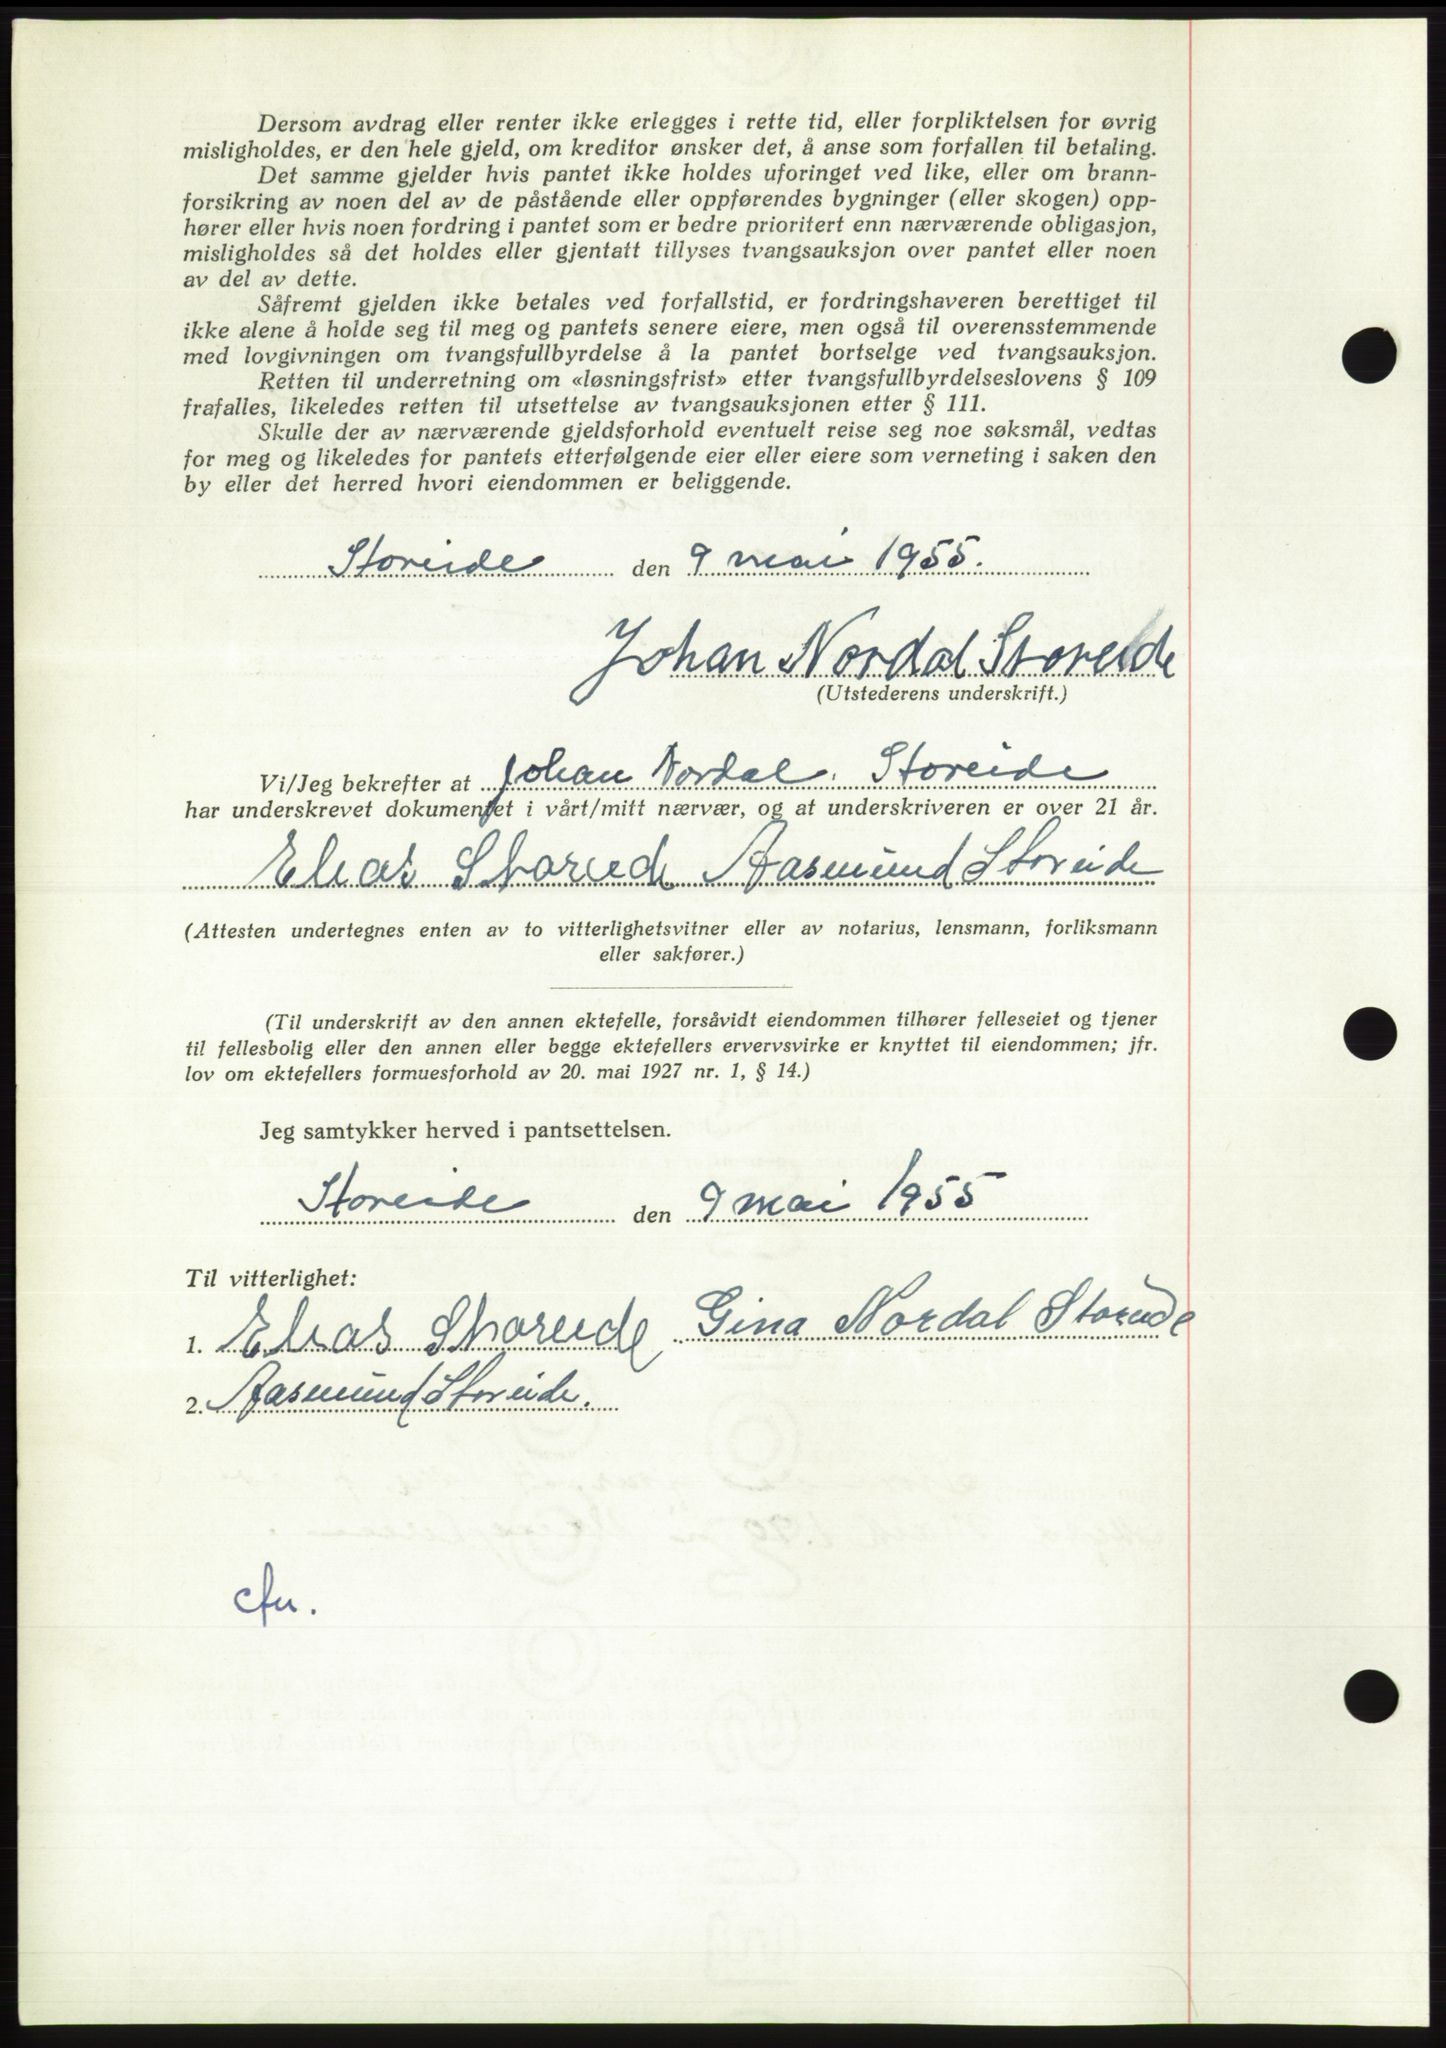 Dersom avdrag eller renter ikke erlegges i rette tid, eller forpliktelsen for øvrig
misligholdes, er den hele gjeld, om kreditor ønsker det, å anse som forfallen til betaling.
Det samme gjelder hvis pantet ikke holdes uforinget ved like, eller om brann-
forsikring av noen del av de påstående eller oppførendes bygninger (eller skogen) opp-
hører eller hvis noen fordring i pantet som er bedre prioritert enn nærværende obligasjon,
misligholdes så det holdes eller gjentatt tillyses tvangsauksjon over pantet eller noen
av del av dette.
Såfremt gjelden ikke betales ved forfallstid, er fordringshaveren berettiget til
ikke alene å holde seg til meg og pantets senere eiere, men også til overensstemmende
med lovgivningen om tvangsfullbyrdelse å la pantet bortselge ved tvangsauksjon.
Retten til underretning om «løsningsfrist» etter tvangsfullbyrdelseslovens § 109
frafalles, likeledes retten til utsettelse av tvangsauksjonen etter § 111.
Skulle der av nærværende gjeldsforhold eventuelt reise seg noe søksmål, vedtas
for meg og likeledes for pantets etterfølgende eier eller eiere som verneting i saken den
by eller det herred hvori eiendommen er beliggende.
Storeide den 9 mai 1955.
Johan Nordal Storeide
(Utstederens underskrift.)
Vi/Jeg bekrefter at Johan Nordal Storeide
har underskrevet dokumentet i vårt/mitt nærvær, og at underskriveren er over 21 år.
Elias Storeide Aasmund Storeide
(Attesten undertegnes enten av to vitterlighetsvitner eller av notarius, lensmann, forliksmann
eller sakfører.)
(Til underskrift av den annen ektefelle, forsåvidt eiendommen tilhører felleseiet og tjener
til fellesbolig eller den annen eller begge ektefellers ervervsvirke er knyttet til eiendommen; jfr.
lov om ektefellers formuesforhold av 20. mai 1927 nr. 1, § 14.)
Jeg samtykker herved i pantsettelsen.
Storeide den 9 mai 1955
Til vitterlighet:
1. Elias Storeide Gina Nordal Storeide
2. Aasmund Storeide.